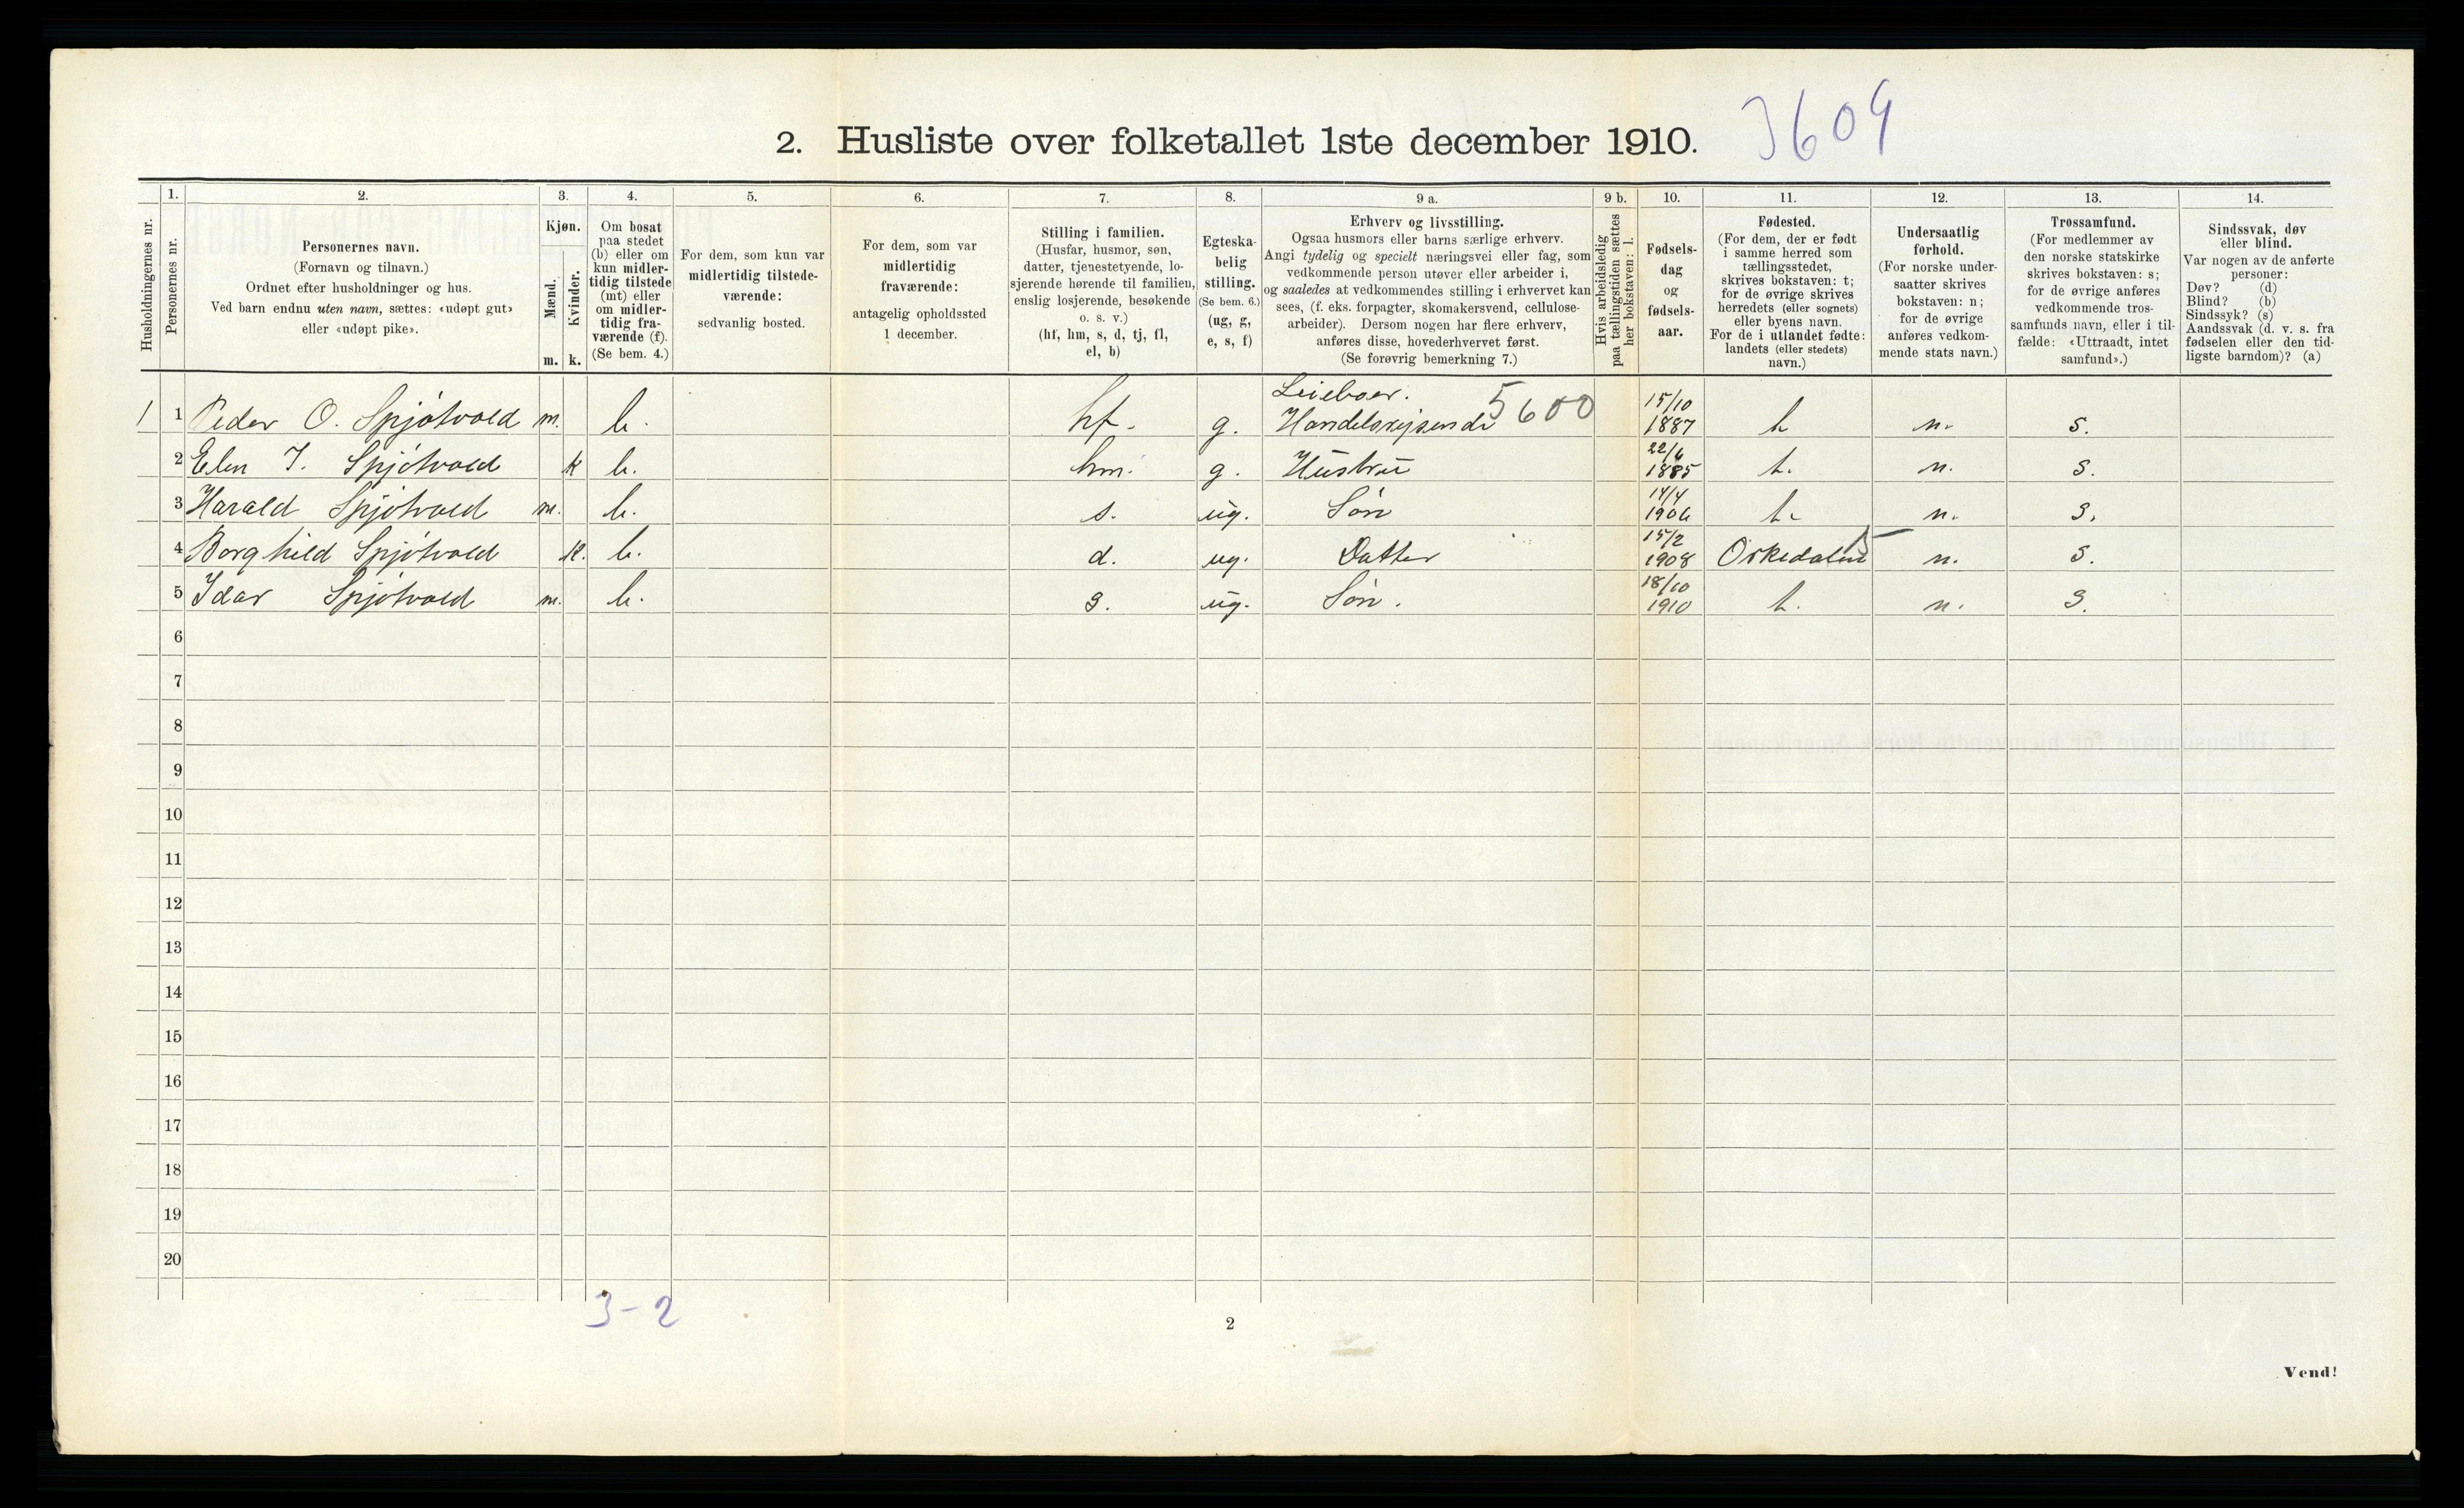 2. Husliste over folketallet 1ste december 1910. 3609
Husholdningernes nr.
1.
Personernes nr.
2.
Personernes navn.
(Fornavn og tilnavn.)
Ordnet efter husholdninger og hus.
Ved barn endnu uten navn, sættes: «udøpt gut»
eller «udøpt pike».
3.
Kjøn.
Mænd.
Kvinder.
m. k.
4.
Om bosat
paa stedet
(b) eller om
kun midler-
tidig tilstede
(mt) eller
om midler-
tidig fra-
værende (f).
(Se bem. 4.)
5.
For dem, som kun var
midlertidig tilstede-
værende:
sedvanlig bosted.
6.
For dem, som var
midlertidig
fraværende:
antagelig opholdssted
1 december.
7.
Stilling i familien.
(Husfar, husmor, søn,
datter, tjenestetyende, lo-
sjerende hørende til familien,
enslig losjerende, besøkende
o. s. v.)
(hf, hm, s, d, tj, fl,
el, b)
8.
Egteska-
belig
stilling.
(Se bem. 6.)
(ug, g,
e, s, f)
9 a.
Erhverv og livsstilling.
Ogsaa husmors eller barns særlige erhverv.
Angi tydelig og specielt næringsvei eller fag, som
vedkommende person utøver eller arbeider i,
og saaledes at vedkommendes stilling i erhvervet kan
sees, (f. eks. forpagter, skomakersvend, cellulose-
arbeider). Dersom nogen har flere erhverv,
anføres disse, hovederhvervet først.
(Se forøvrig bemerkning 7.)
9 b.
Hvis arbeidsledig
paa tællingstiden sættes
her bokstaven: l.
10.
Fødsels-
dag
og
fødsels-
aar.
11.
Fødested.
(For dem, der er født
i samme herred som
tællingsstedet,
skrives bokstaven: t;
for de øvrige skrives
herredets (eller sognets)
eller byens navn.
For de i utlandet fødte:
landets (eller stedets)
navn.)
12.
Undersaatlig
forhold.
(For norske under-
saatter skrives
bokstaven: n;
for de øvrige
anføres vedkom-
mende stats navn.)
13.
Trossamfund.
(For medlemmer av
den norske statskirke
skrives bokstaven: s;
for de øvrige anføres
vedkommende tros-
samfunds navn, eller i til-
fælde: «Uttraadt, intet
samfund».)
14.
Sindssvak, døv
eller blind.
Var nogen av de anførte
personer:
Døv? (d)
Blind? (b)
Sindssyk? (s)
Aandssvak (d. v. s. fra
fødselen eller den tid-
ligste barndom)? (a)
Leieboer. 15/10
1 1 Peder O. Spjøtvold m. b. hf. g. Handelsrejsende 5600 1887 t n. s.
22/6
2 Elen I. Spjøtvold k b. hm. g. Hustru 1885 t. n. s.
14/4
3 Harald Spjøtvold m. b. s. ug. Søn 1906 t. n. s.
15/2
4 Borghild Spjøtvold k. b. d. ug. Datter 1908 Orkedalen n. s.
18/10
5 Idar Spjøtvold m. b. s. ug. Søn. 1910 t. n. s.
6
7
8
9
10
11
12
13
14
15
16
17
18
19
20
3-2
2
Vend!